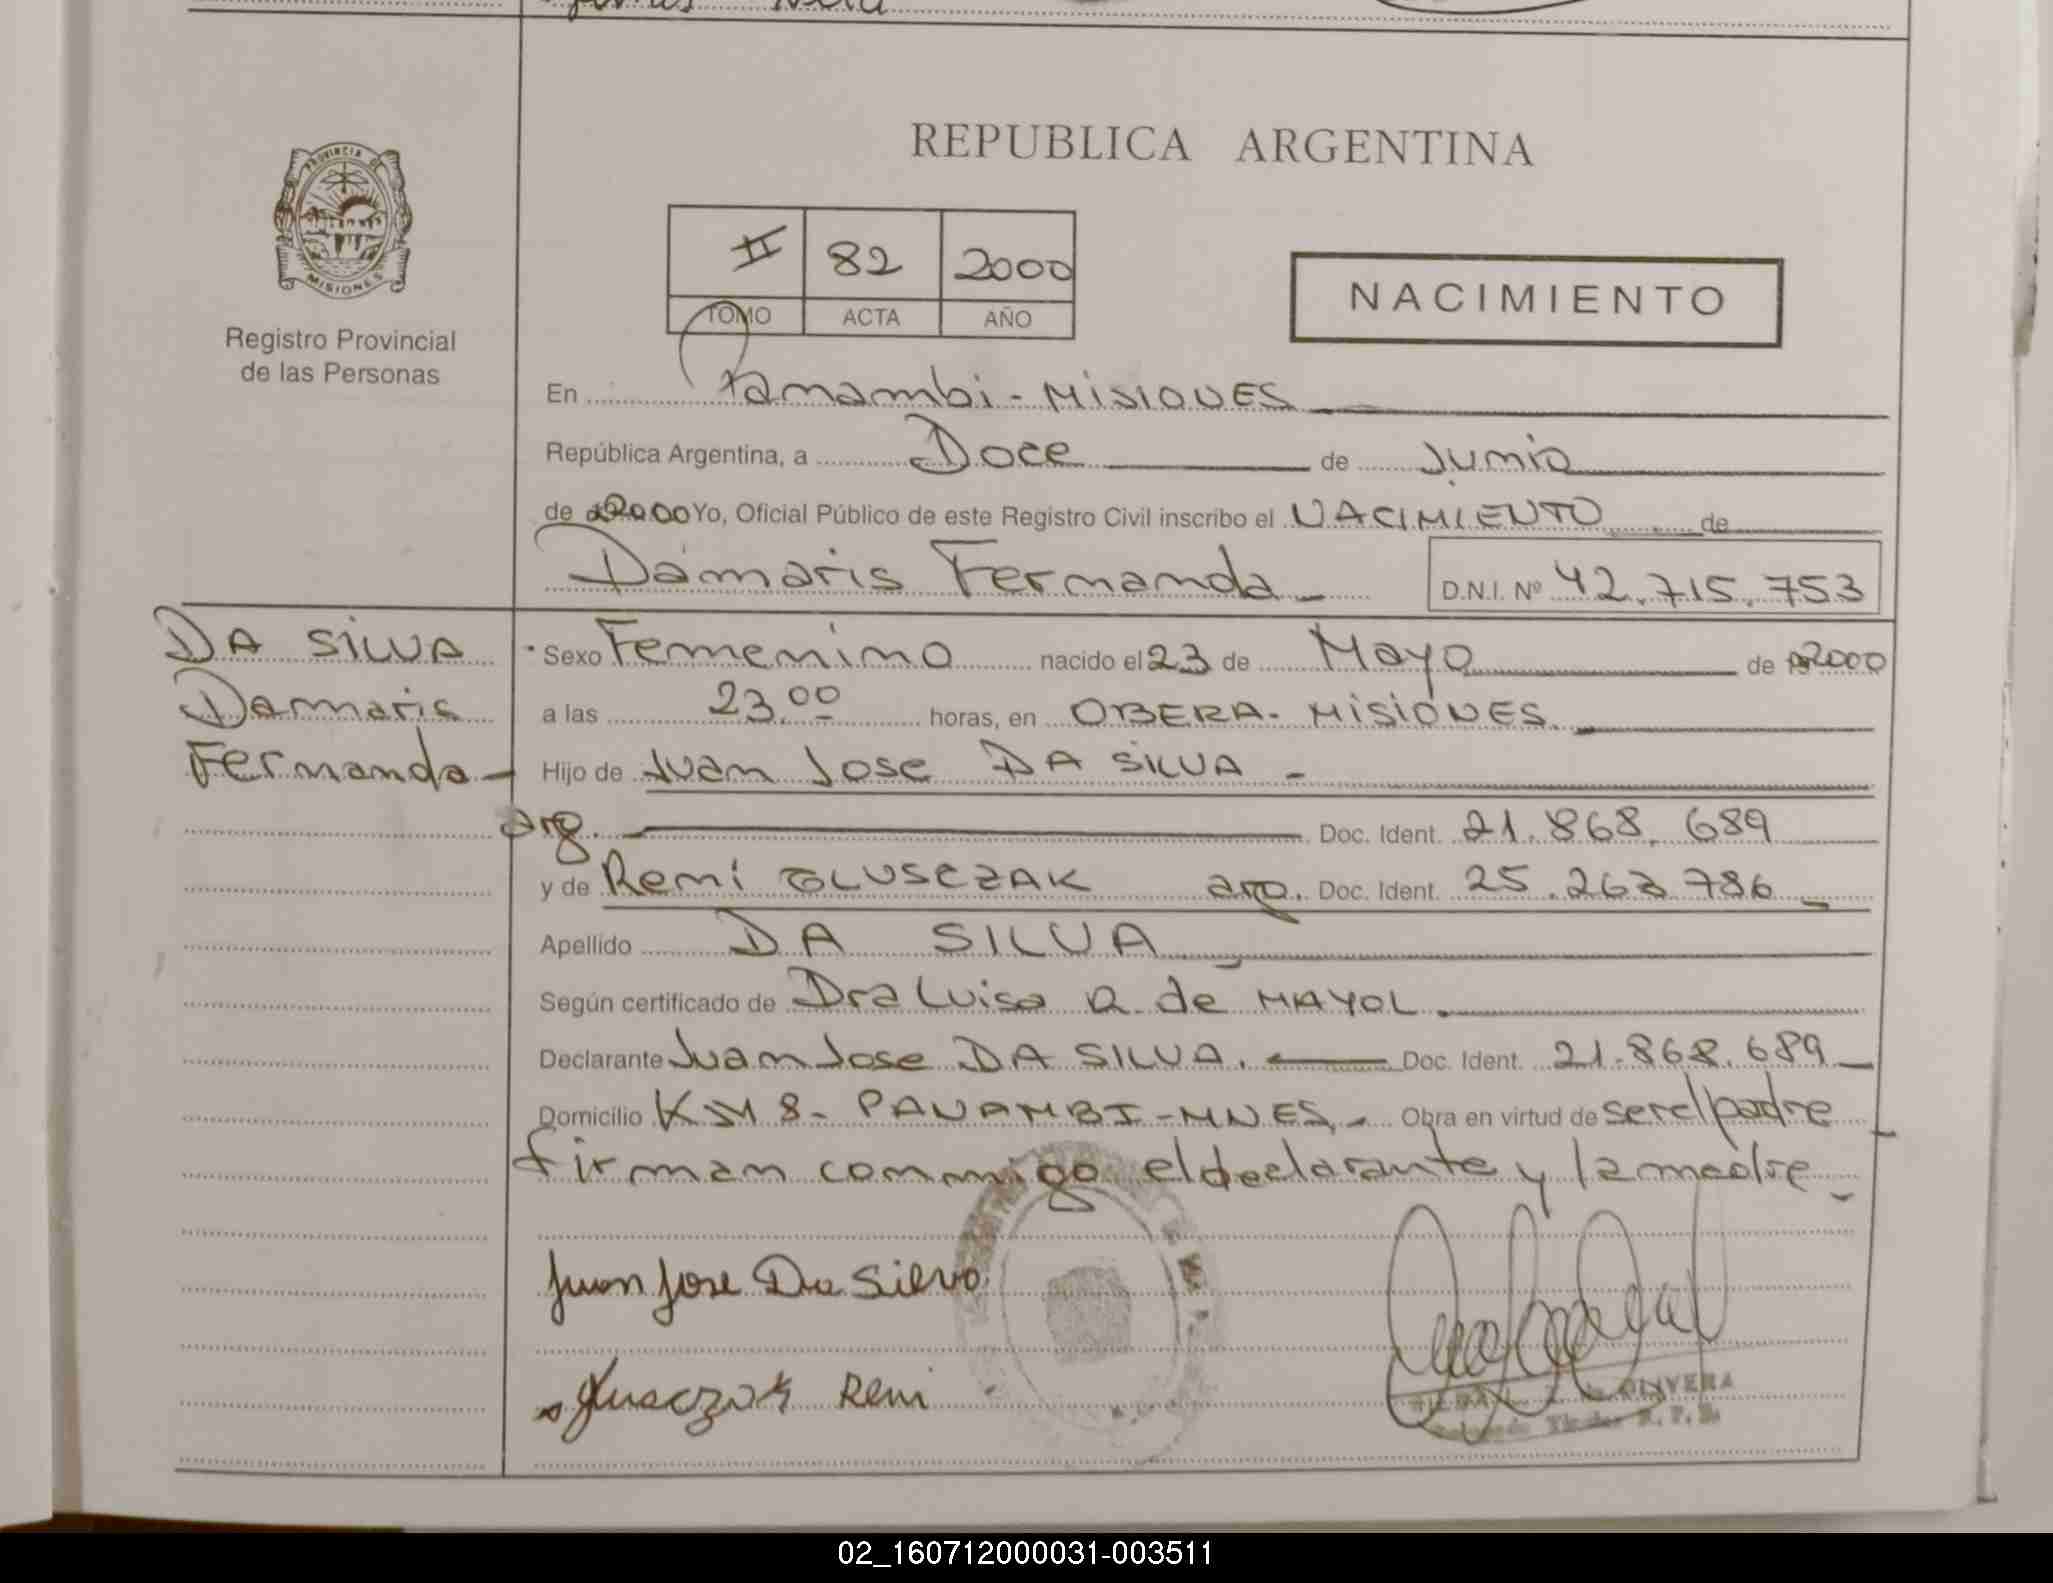 REPUBLICA ARGENTINA
PROVINCIA DE
MISIONES
Registro Provincial
de las Personas
II 82 2000
TOMO ACTA AÑO
NACIMIENTO
En Panambi - MISIONES
República Argentina, a Doce de Junio
de 2000 Yo, Oficial Público de este Registro Civil inscribo el NACIMIENTO de
Dámaris Fernanda - D.N.I. Nº 42.715.753
DA SILVA
Damaris
Fernanda -
Sexo Femenino nacido el 23 de Mayo de 2000
a las 23.00 horas, en OBERA - MISIONES
Hijo de Juan Jose DA SILVA -
arg. Doc. Ident. 21.868.689
y de Remi GLUSCZAK arg. Doc. Ident. 25.263.786
Apellido DA SILVA
Según certificado de Dra Luisa R. de MAYOL
Declarante Juan Jose DA SILVA. Doc. Ident. 21.868.689
Domicilio KM 8 - PANAMBI - MNES - Obra en virtud de ser el padre
firman conmigo el declarante y la madre
Juan Jose Da Silva
Glusczak Remi
OLIVERA
02_160712000031-003511